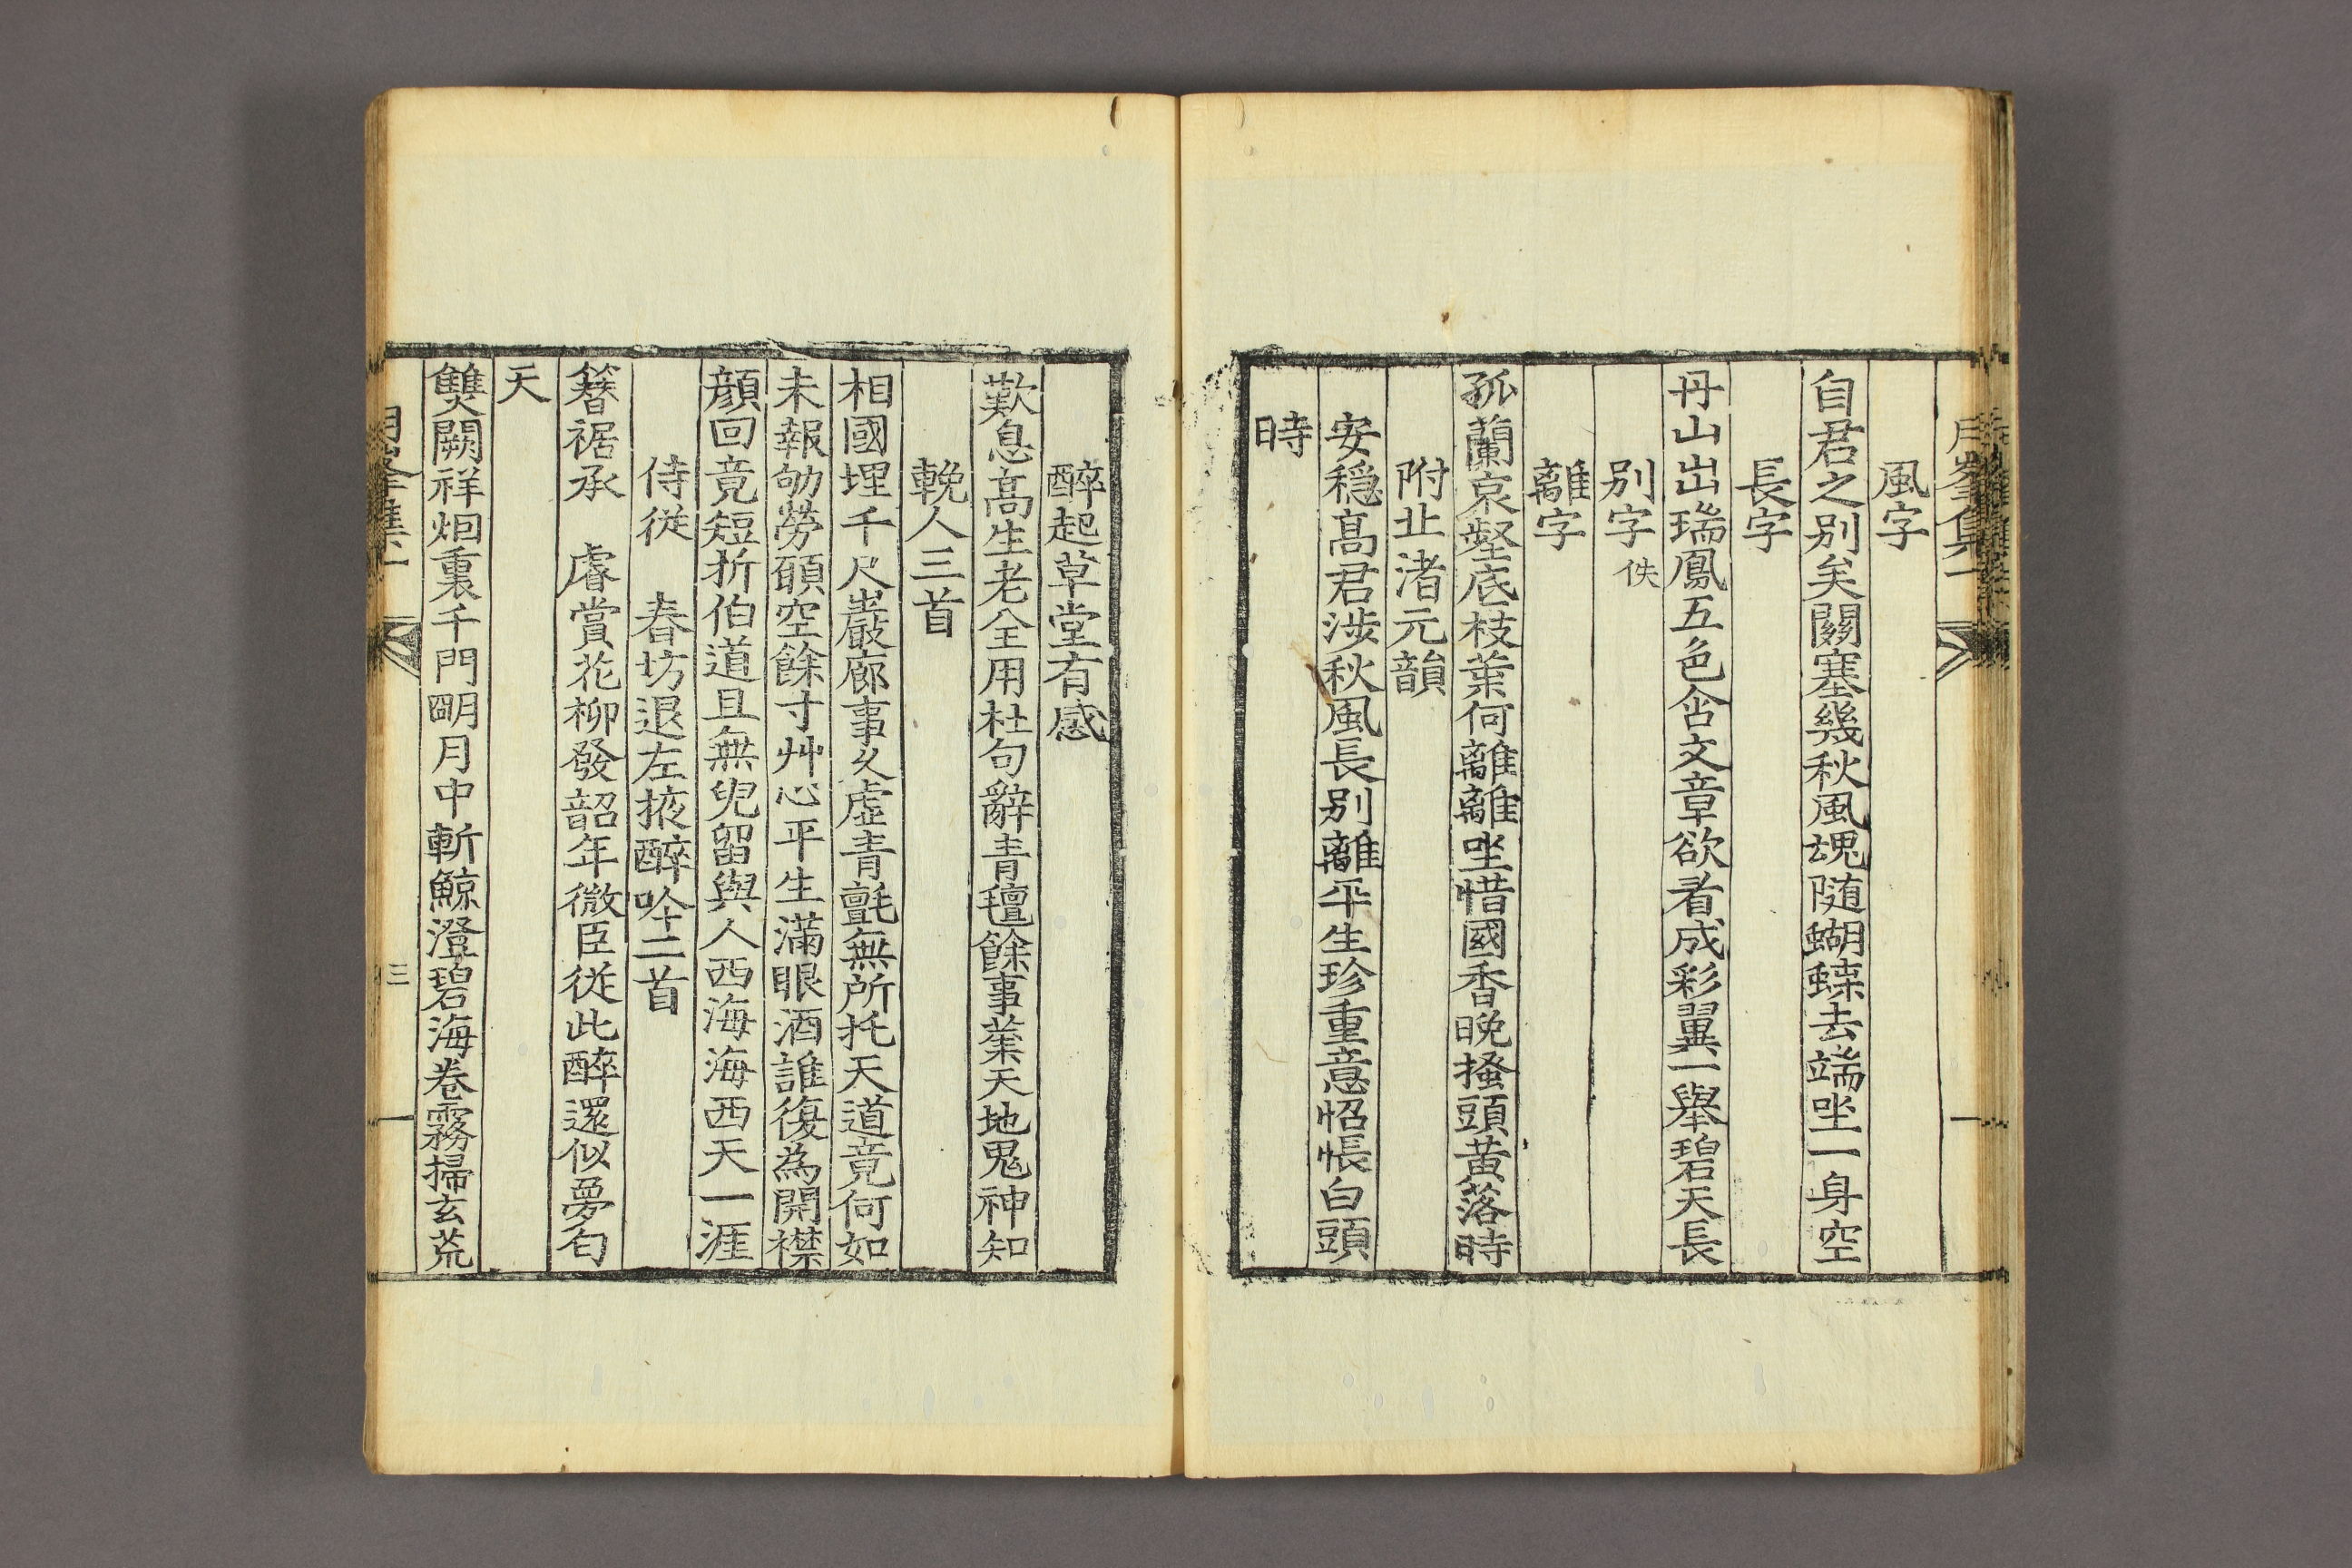 月峯集一
風字
自君之别矣關塞幾秋風魂随蝴蝶去端坐一身空
長字
丹山出瑞鳳五色含文章欲看成彩翼一舉碧天長
别字 佚
離字
孤蘭哀壑底枝葉何離離坐惜國香晚搔頭黃落時
附止渚元韻
安穩髙君涉秋風長别離平生珍重意怊悵白頭
時
醉起草堂有感
歎息髙生老全用杜句辭青氊餘事業天地鬼神知
輓人三首
相國埋千尺巖廊事久虚青氈無所托天道竟何如
未報劬勞䪺空餘寸艸心平生滿眼酒誰復為開襟
顔回竟短折伯道且無兒留與人西海海西天一涯
侍從 春坊退左掖醉吟二首
簪裾承 睿賞花柳發韶年微臣從此醉還似夢匂
天
雙闕祥烟重裏千門朙月中斬鯨澄碧海卷霧掃玄荒
月峯集一
三